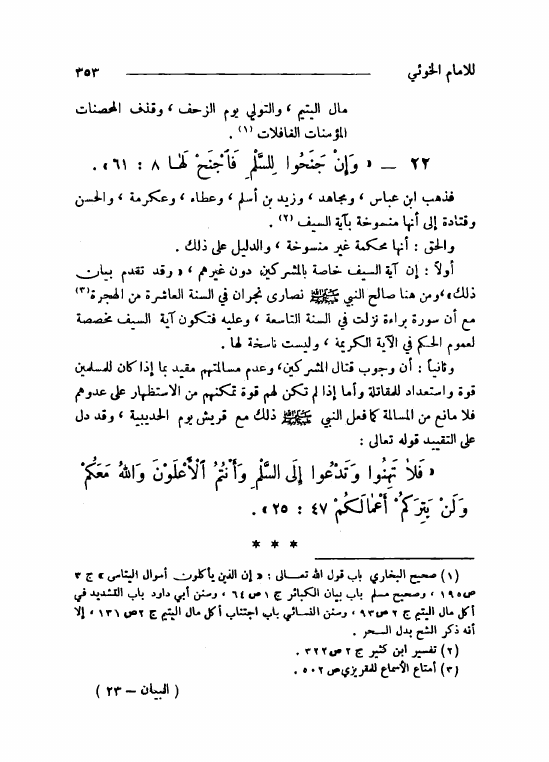 للامام الخوئي ــــــــــــــــــــ ٣٥٣
مال اليتيم ، والتولي يوم الزحف ، وقذف المحصنات
المؤمنات الغافلات (١) .
٢٢ ــ « وَإِنْ جَنَحُوا لِلسَّلْمِ فَاجْنَحْ لَهَا ٨ : ٦١ » .
فذهب ابن عباس ، ومجاهد ، وزيد بن أسلم ، وعطاء ، وعكرمة ، والحسن
وقتادة إلى أنها منسوخة بآية السيف (٢) .
والحق : أنها محكمة غير منسوخة ، والدليل على ذلك .
أولاً : إن آية السيف خاصة بالمشركين دون غيرهم ، « وقد تقدم بيان
ذلك » ، ومن هنا صالح النبي ﷺ نصارى نجران في السنة العاشرة من الهجرة (٣)
مع أن سورة براءة نزلت في السنة التاسعة ، وعليه فتكون آية السيف مخصصة
لعموم الحكم في الآية الكريمة ، وليست ناسخة لها .
وثانياً : أن وجوب قتال المشركين، وعدم مسالمتهم مقيد بما إذا كان للمسلمين
قوة واستعداد للمقاتلة وأما إذا لم تكن لهم قوة تمكنهم من الاستظهار على عدوهم
فلا مانع من المسالمة كما فعل النبي ﷺ ذلك مع قريش يوم الحديبية ، وقد دل
على التقييد قوله تعالى :
« فَلَا تَهِنُوا وَتَدْعُوا إِلَى السَّلْمِ وَأَنْتُمُ الْأَعْلَوْنَ وَاللَّهُ مَعَكُمْ
وَلَنْ يَتِرَكُمْ أَعْمَالَكُمْ ٤٧ : ٢٥ » .
* * *
(١) صحيح البخاري باب قول الله تعالى : « إن الذين يأكلون أموال اليتامى » ج ٣
ص ١٩٥ ، وصحيح مسلم باب بيان الكبائر ج ١ ص ٦٤ ، وسنن أبي داود باب التشديد في
أكل مال اليتيم ج ٢ ص ٩٣ ، وسنن النسائي باب اجتناب أكل مال اليتيم ج ٢ ص ١٣١ ، إلا
أنه ذكر الشح بدل السحر .
(٢) تفسير ابن كثير ج ٢ ص ٣٢٢ .
(٣) أمتاع الأسماع للمقريزي ص ٥٠٢ .
( البيان – ٢٣ )